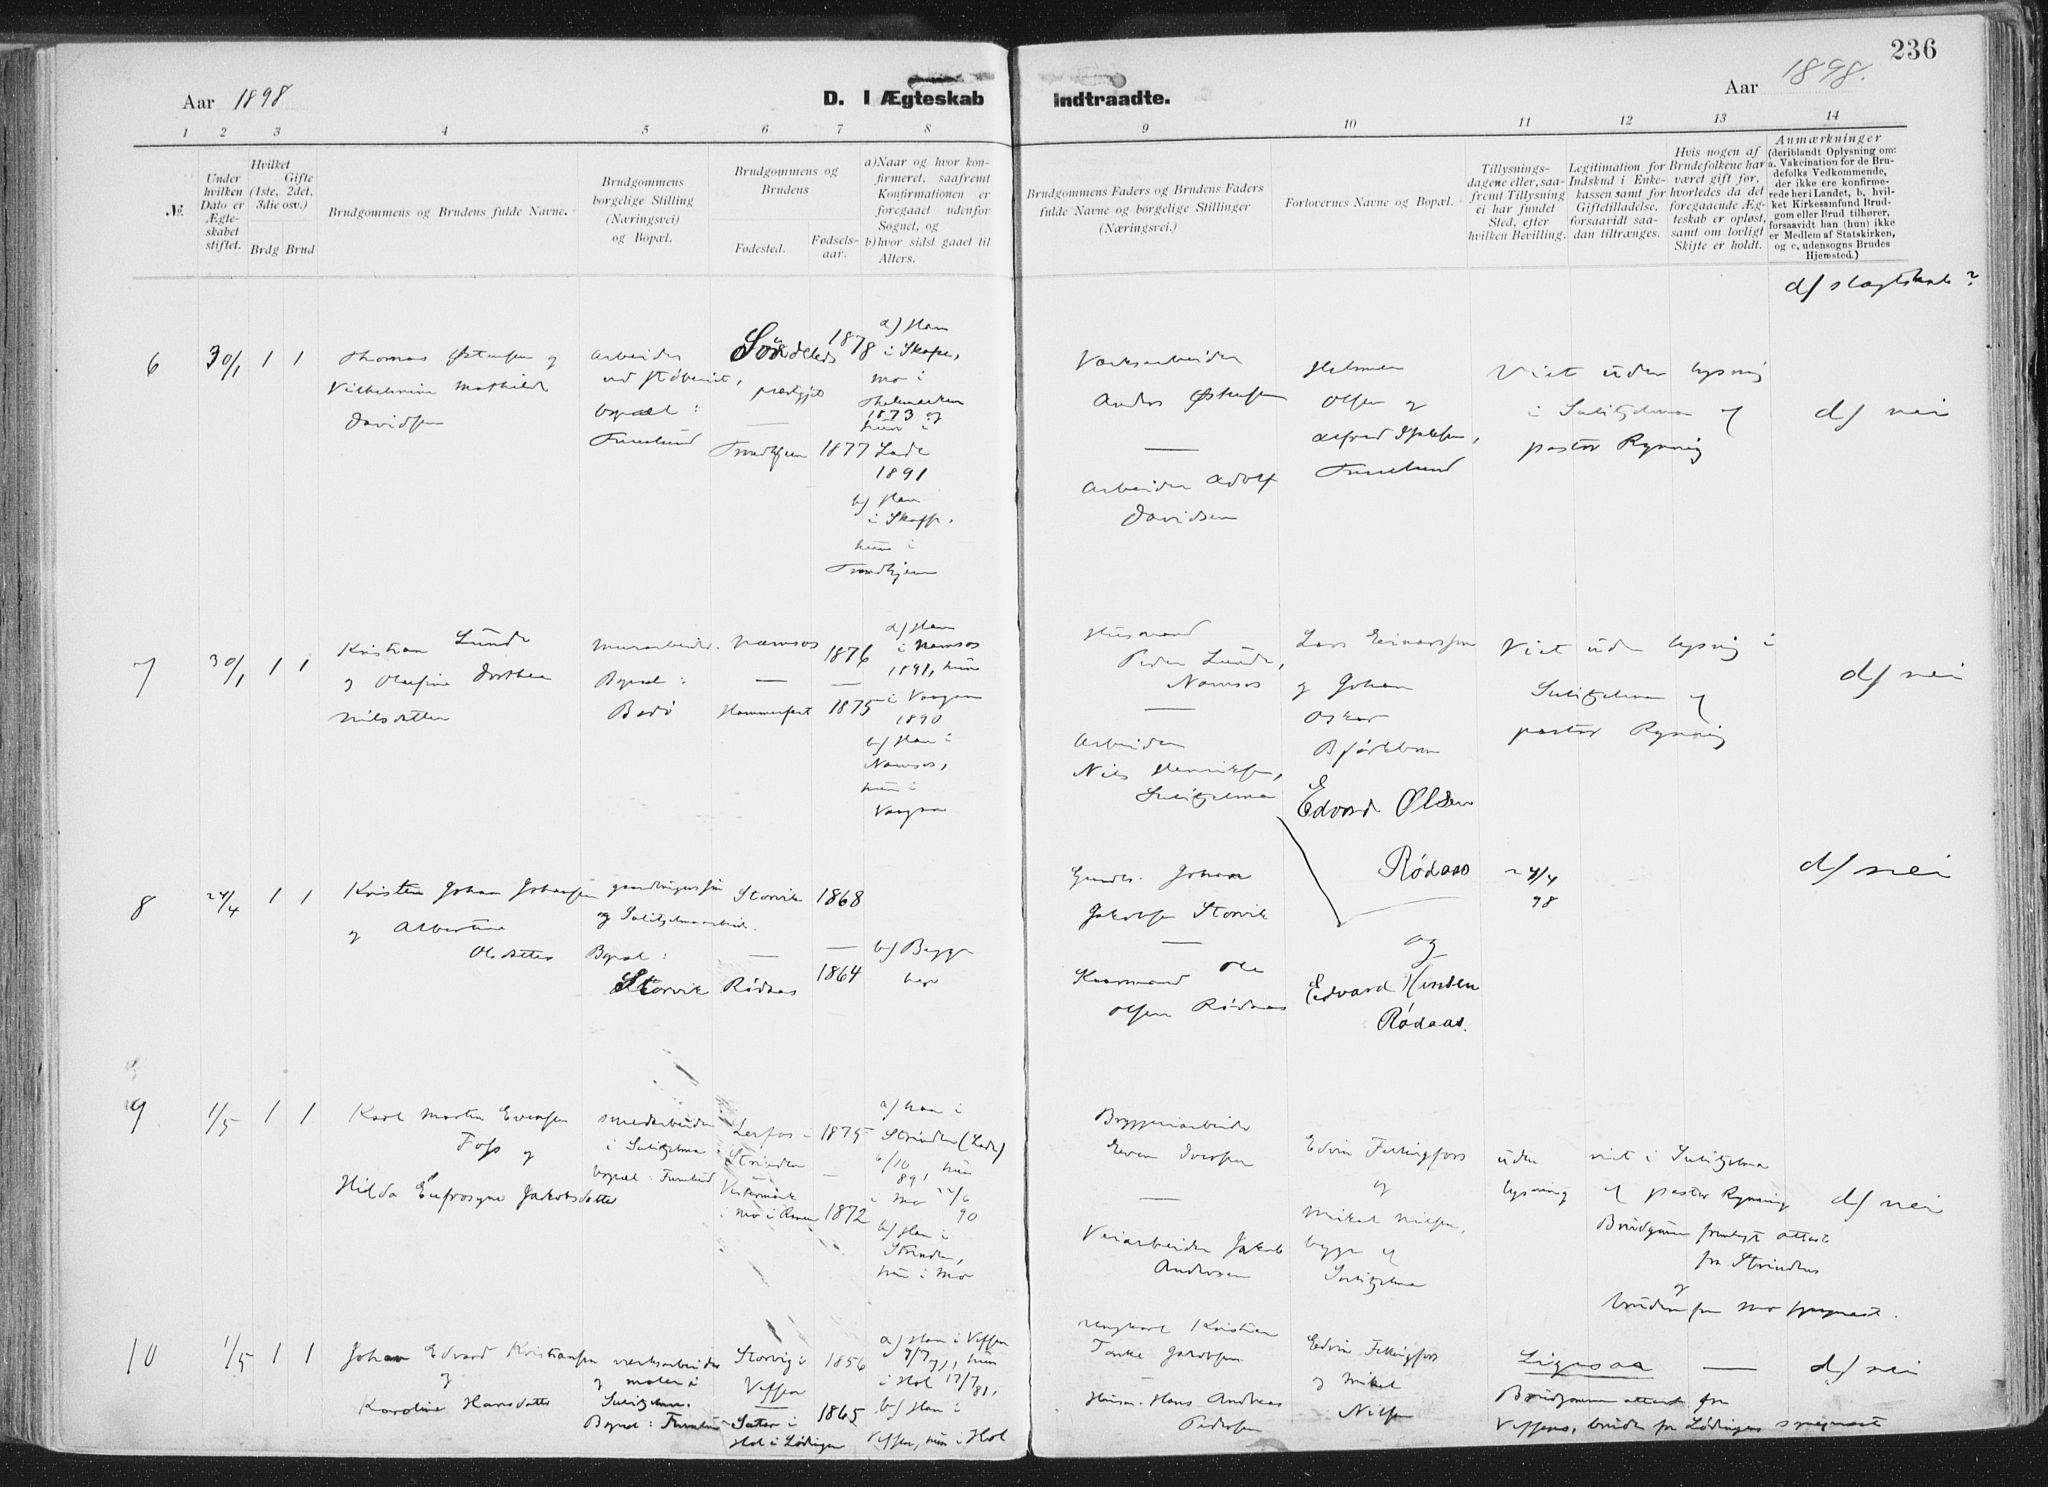 236
Aar 1898
D. I Ægteskab
Indtraadte.
Aar 1898.
1 2 3 4 5 6 7 8
9 10 11 12 13 14
№.
Under
hvilken
Dato er
Ægte-
skabet
stiftet.
Hvilket
Gifte
(1ste, 2det,
3die osv.)
Brdg Brud
Brudgommens og Brudens fulde Navne.
Brudgommens
borgelige Stilling
(Næringsvei)
og Bopæl.
Brudgommens og
Brudens
Fødested.
Fødsels-
aar.
a) Naar og hvor kon-
firmeret, saafremt
Konfirmationen er
foregaaet udenfor
Sognet, og
b) hvor sidst gaaet til
Alters.
Brudgommens Faders og Brudens Faders
fulde Navne og borgelige Stillinger
(Næringsvei.)
Forlovernes Navne og Bopæl.
Tillysnings-
dagene eller, saa-
fremt Tillysning
ei har fundet
Sted, efter
hvilken Bevilling.
Legitimation for
Indskud i Enke-
kassen samt for
Giftetilladelse,
forsaavidt saa-
dan tiltrænges.
Hvis nogen af
Brudefolkene har
været gift før,
hvorledes da det
foregaaende Æg-
teskab er opløst,
samt om lovligt
Skifte er holdt.
Anmærkninger
(deriblandt Oplysning om:
a. Vakcination for de Bru-
defolks Vedkommende,
der ikke ere konfirme-
rede her i Landet, b, hvil-
ket Kirkesamfund Brud-
gom eller Brud tilhører,
forsaavidt han (hun) ikke
er Medlem af Statskirken,
og c, udensogns Brudes
Hjemsted.)
d/ slægtskab?
6 30/1 1 1
Thomas Østensen og
Vilhelmine Mathilde
Davidsen
Arbeider
ved
bopæl:
Furulund
præstgjeld
Trondhjem
1878
1877
a/ Han
i
Mo i
Thelemarken
1873 og
hun i
Lade
1891
b/ Han
i
hun i
Trondhjem
Værksarbeider
Anders
—
Arbeider Adolf
Davidsen
Olsen og
Alfred
Furulund
Viet uden lysning
i Sulitjelma af
pastor Rynning
d/ nei
7 30/1 1 1
Kristian Lunde
og Olufine Dorthea
Nilsdatter
Murarbeider.
Bopæl:
Bodø
Namsos
—
Hammerfest
1876
—
1875
a/ Han
i Namsos
1891, hun
i Vaagan
1890
b/ Han i
Namsos,
hun i
Vaagan
Husmand
Peder Lunde,
Namsos
—
Arbeider
Nils Henriksen,
Sulitjelma
Lars Einarssen
og Johan
Oskar
Viet uden lysning i
Sulitjelma af
pastor Rynning
d/ nei
8 24/4 1 1
Kristen Johan Johansen
og Albertine
Olsdatter
og Sulitjelmaarbeid.
Bopæl:
Storvik
Storvik
—
Rødaas
1868
—
1864
b/ Begge
her
Gaardbr. Johan
Jakobsen Storvik
—
Kaarmand Ole
Olsen Rødaas
Edvard Olsen
Rødaas
og
Edvard Hansen
Rødaas.
24/4
98
d/ nei
9 1/5 1 1
Karl Martin Evensen
Foss og
Hilda Eufrosyne Jakobsdatter
Smedarbeider
i Sulitjelma
bopæl: Furulund
Lerfos i
Strinden
i Mo i Ranen
1875
—
1872
a/ han i
Strinden (Lade)
6/10
891, hun
i Mo 22/6
90
b/ Han i
Strinden,
hun i Mo
Bryggeriarbeider
Even Iversen
—
Veiarbeider Jakob
Andersen
Edvin Fellingfors
og
Mikal Nilsen,
begge af
Sulitjelma
uden
lysning
viet i Sulitjelma
af pastor Rynning
Brudgom fremlagt attest
fra Strindens
og
bruden fra Mo sognepræst.
d/ nei
10 1/5 1 1
Johan Edvard Kristiansen
og
Karoline Hansdatter
værksarbeider
og maler i
Sulitjelma.
Bopæl: Furulund
Storvig i
Vefsen
—
Sæter i
Hol i Lødingen
1856
1865
a/ Han i Vefsen
hun
i Hol 17/7
81,
b/ Han i
Vefsen, hun i Hol
Ungkarl Kristian
Tanke Jakobsen
Husm. Hans Andreas
Pedersen
Edvin Fellingfors
og Mikal
Nilsen
Ligesaa —
Brudgommen attest fra
Vefsens, bruden fra Lødingens sognepræst
d/ nei